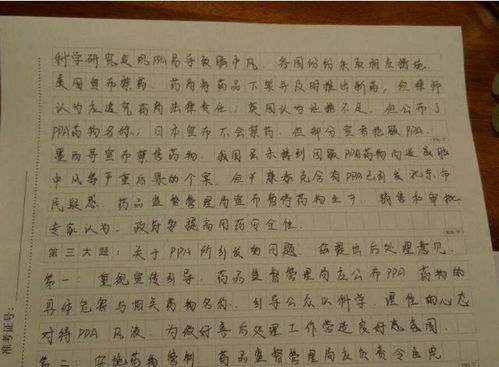 科学研究发现PPA易导致脑中风。各国纷纷采取相应措施。
美国宣布禁药。药商将药品下架并及时推出新药，但律师
认为应追究药商法律责任；英国认为证据不足，但公布了
PPA药物名称；日本宣布不会禁药，但部分宣布抵服PPA；
墨西哥宣布禁售药物。我国虽未接到因服PPA药物而造成脑
中风等严重后果的个案，但康泰克含有PPA已引发北京市
民疑惑。药品监督管理局宣布暂停药物生产、销售和审批
专家认为，政府要提高用药安全性。
第三大题：关于PPA所引发的问题，兹提出后处理意见。
第一：重视宣传引导。药品监督管理局应公布PPA药物的
具体危害与相关药物名称，引导公众以科学、理性的心态
对待PPA风波，为做好善后处理工作营造良好氛围。
第二：实施药物管制。药品监督管理局应负责令医院
准考证号：